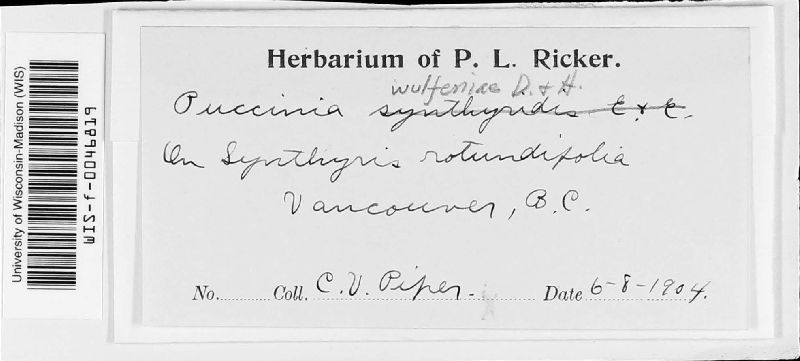 Herbarium of P. L. Ricker.
wulfeniae D. & H.
Puccinia synthyridis E. & E.
On Synthyris rotundifolia
Vancouver, B.C.
No. Coll. C. V. Piper. Date 6-8-1904.
University of Wisconsin-Madison (WIS)
WIS-f-0046819